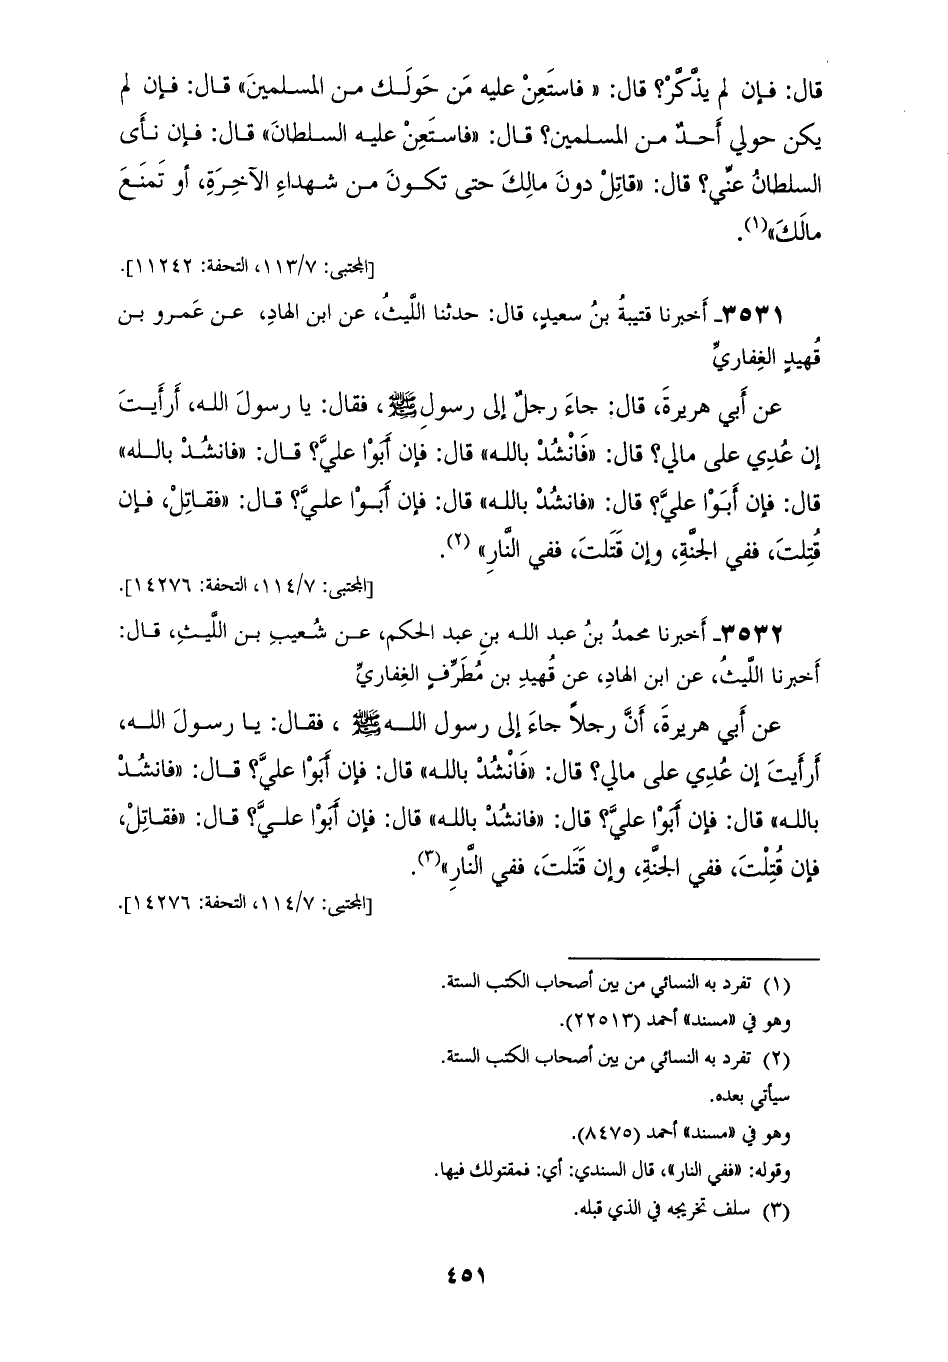 قال: فإن لم يذَّكَّرْ؟ قال: « فاستَعِنْ عليه مَن حَولَك من المسلمينَ» قال: فإن لم
يكن حولي أَحدٌ من المسلمين؟ قال: «فاستَعِنْ عليه السلطانَ» قال: فإن نأَى
السلطانُ عنِّي؟ قال: «قاتِلْ دونَ مالِكَ حتى تكونَ من شهداءِ الآخِرَةِ، أو تَمنَعَ
مالَكَ»(١).
[المجتبى: ١١٣/٧، التحفة: ١١٢٤٢].
٣٥٣١ـ أَخبرنا قتيبةُ بنُ سعيدٍ، قال: حدثنا اللَّيثُ، عن ابن الهادِ، عن عَمرو بن
قُهيدٍ الغِفاريِّ
عن أَبي هريرةَ، قال: جاءَ رجلٌ إلى رسولِ ﷺ، فقال: يا رسولَ الله، أَرأَيتَ
إن عُدِي على مالي؟ قال: «فَانْشُدْ بالله» قال: فإن أَبَوْا عليَّ؟ قال: «فانشُدْ بالله»
قال: فإن أَبَوْا عليَّ؟ قال: «فانشُدْ بالله» قال: فإن أَبَوْا عليَّ؟ قال: «فقاتِلْ، فإن
قُتِلتَ، ففي الجنَّةِ، وإن قَتَلتَ، ففي النَّارِ» (٢).
[المجتبى: ١١٤/٧، التحفة: ١٤٢٧٦].
٣٥٣٢ـ أَخبرنا محمدُ بنُ عبد الله بنِ عبد الحكم، عن شُعيبِ بن اللَّيثِ، قال:
أَخبرنا اللَّيثُ، عن ابن الهادِ، عن قُهيدِ بن مُطَرِّفٍ الغِفاريِّ
عن أَبي هريرةَ، أَنَّ رجلاً جاءَ إلى رسول الله ﷺ ، فقال: يا رسولَ الله،
أَرأَيتَ إن عُدِي على مالي؟ قال: «فَانْشُدْ بالله» قال: فإن أَبَوْا عليَّ؟ قال: «فانشُدْ
بالله» قال: فإن أَبَوْا عليَّ؟ قال: «فانشُدْ بالله» قال: فإن أَبَوْا عليَّ؟ قال: «فقاتِلْ،
فإن قُتِلْتَ، ففي الجنَّةِ، وإن قَتَلتَ، ففي النَّارِ»(٣).
[المجتبى: ١١٤/٧، التحفة: ١٤٢٧٦].
(١) تفرد به النسائي من بين أصحاب الكتب الستة.
وهو في «مسند» أحمد (٢٢٥١٣).
(٢) تفرد به النسائي من بين أصحاب الكتب الستة.
سيأتي بعده.
وهو في «مسند» أحمد (٨٤٧٥).
وقوله: «ففي النار»، قال السندي: أي: فمقتولك فيها.
(٣) سلف تخريجه في الذي قبله.
٤٥١